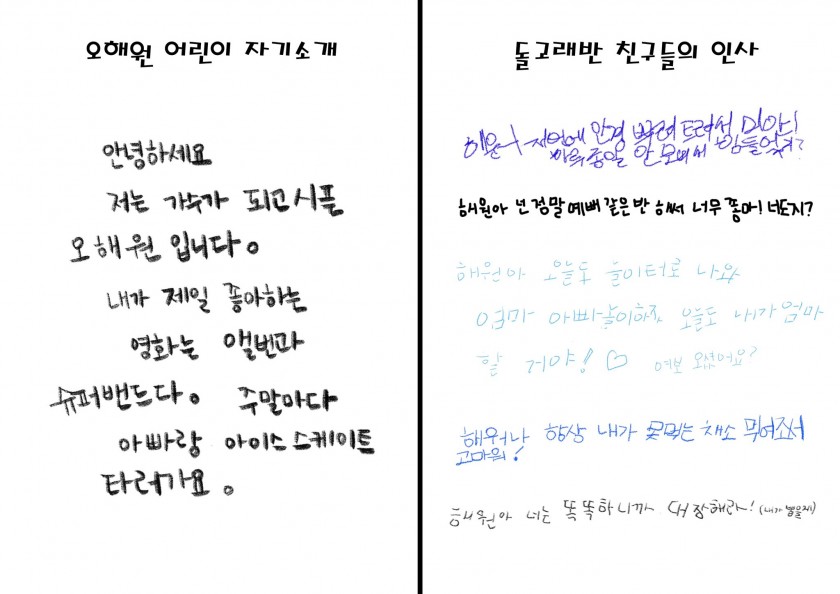 오해원 어린이 자기소개
안녕하세요
저는 가수가 되고시플
오해원 입니다。
내가 제일 좋아하는
영화는 앨번과
슈퍼밴드다。 주말마다
아빠랑 아이스스케이트
타러가요。
돌고래반 친구들의 인사
해운아 저번에 안경 뿌려트려서 미아니
하루종일 안 보여서 힘들었지?
해원아 넌 정말 예뻐 같은 반 해써 너무 쫑아! 너도지?
해원아 오늘도 놀이터로 나와
엄마 아빠놀이하자 오늘도 내가 엄마
할 거야! ♡ 여보 오셨어요?
해워나 항상 내가 못먹는 채소 먹어조서
고마워!
해원아 너는 똑똑하니까 대장해라!